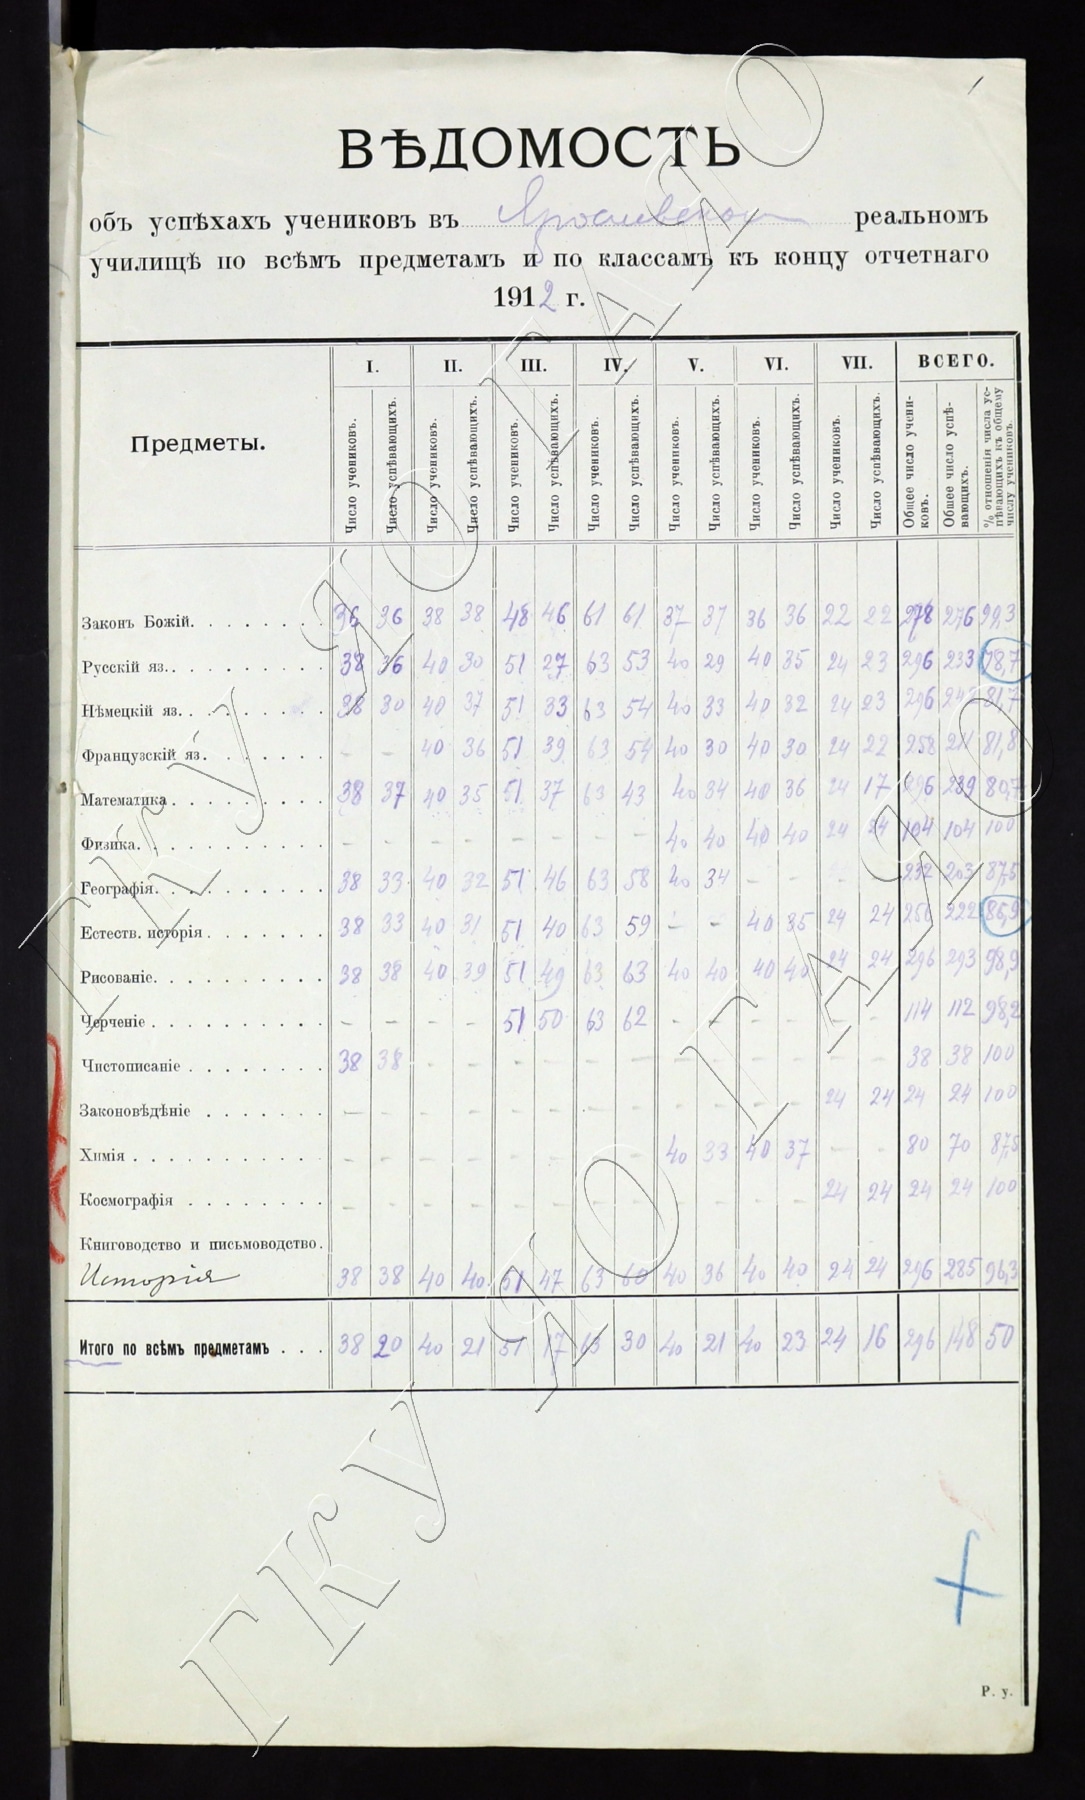 ВѢДОМОСТЬ
объ успѣхахъ учениковъ въ Ярославском реальномъ
училищѣ по всѣмъ предметамъ и по классамъ къ концу отчетнаго
1912 г.
Предметы. I. II. III. IV. V. VI. VII. ВСЕГО.
Число учениковъ. Число успѣвающихъ. Число учениковъ. Число успѣвающихъ. Число учениковъ. Число успѣвающихъ. Число учениковъ. Число успѣвающихъ. Число учениковъ. Число успѣвающихъ. Число учениковъ. Число успѣвающихъ. Число учениковъ. Число успѣвающихъ. Общее число учениковъ. Общее число успѣвающихъ. % отношенія числа успѣвающихъ къ общему числу учениковъ.
Законъ Божій. 36 36 38 38 48 46 61 61 37 37 36 36 22 22 278 276 99,3
Русскій яз. 38 36 40 30 51 27 63 53 40 29 40 35 24 23 296 233 98,7
Нѣмецкій яз. 38 30 40 37 51 33 63 54 40 33 40 32 24 23 296 242 81,7
Французскій яз. - - 40 36 51 39 63 54 40 30 40 30 24 22 258 211 81,8
Математика 38 37 40 35 51 37 63 43 40 34 40 36 24 17 296 239 80,7
Физика. - - - - - - - - 40 40 40 40 24 24 104 104 100
Географія. 38 33 40 32 51 46 63 58 40 34 - - 232 203 87,5
Естеств. исторія 38 33 40 31 51 40 63 59 - - 40 35 24 24 256 222 86,9
Рисованіе. 38 38 40 39 51 49 63 63 40 40 40 40 24 24 296 293 98,9
Черченіе - - - - 51 50 63 62 - - - - - - 114 112 98,2
Чистописаніе 38 38 - - - - - - - - - - - - 38 38 100
Законовѣдѣніе - - - - - - - - - - - - 24 24 24 24 100
Химія - - - - - - - - 40 33 40 37 - - 80 70 87,5
Космографія - - - - - - - - - - - - 24 24 24 24 100
Книговодство и письмоводство.
Исторія 38 38 40 40 51 47 63 60 40 36 40 40 24 24 296 285 96,3
Итого по всѣмъ предметамъ 38 20 40 21 51 17 63 30 40 21 40 23 24 16 296 148 50
Р. у.
ГКУ ЯО ГАЯО
ГКУ ЯО ГАЯО